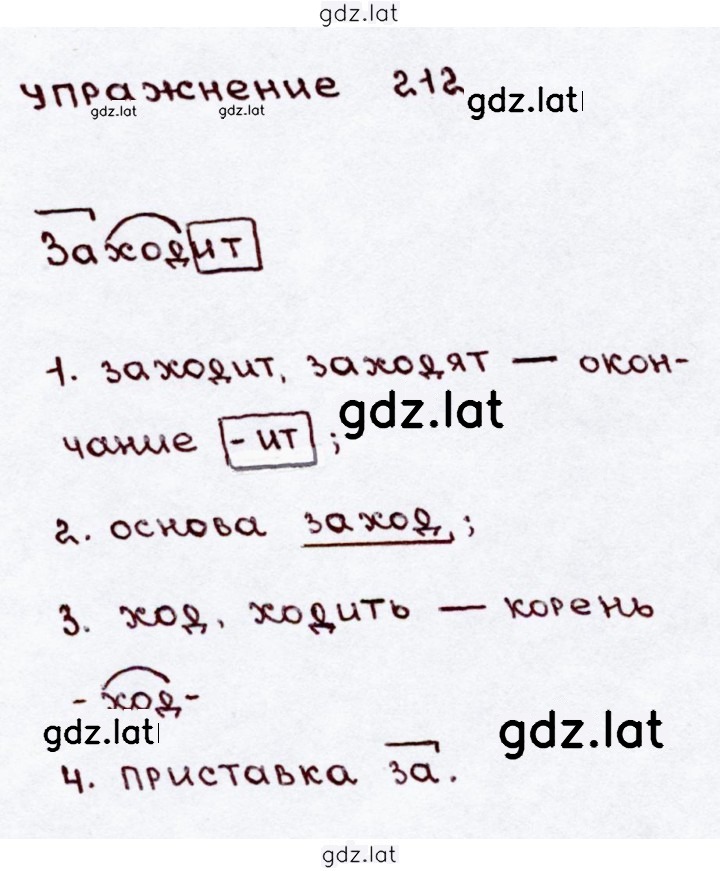 gdz.lat
упражнение 212
gdz.lat
gdz.lat
gdz.lat
Заходит
1. заходит, заходят — окон-
чание -ит ;
gdz.lat
2. основа заход,;
3. ход, ходить — корень
-ход-
gdz.lat
gdz.lat
4. приставка за.
gdz.lat